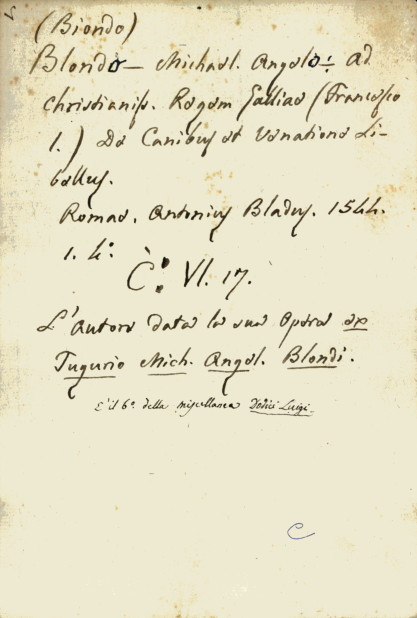 (Biondo)
Blondo — Michael. Angelo: ad
Christianiss. Regem Galliae (Francesco
1.) De Canibus et Venatione Li-
bellus.
Romae. Antonius Bladus. 1544.
1. 4.°
C.° VI. 17.
L'autore data la sua Opera ex
Tugurio Mich. Angel. Blondi.
È il 6.° della miscellanea Dodici Luigi.
C